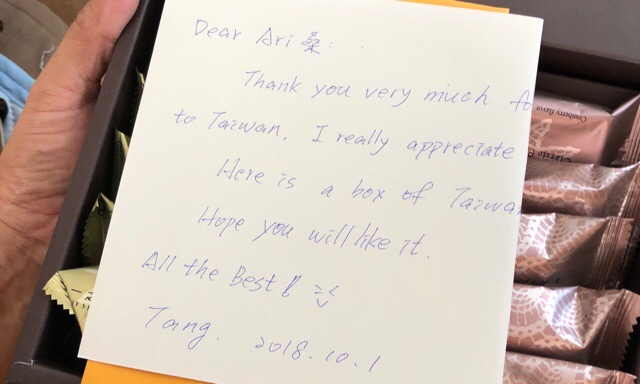 Dear Ari 桑:
Thank you very much fo
to Taiwan. I really appreciate
Here is a box of Taiwa
Hope you will like it.
All the Best!
Tang. 2018.10.1
Cranberry flavor